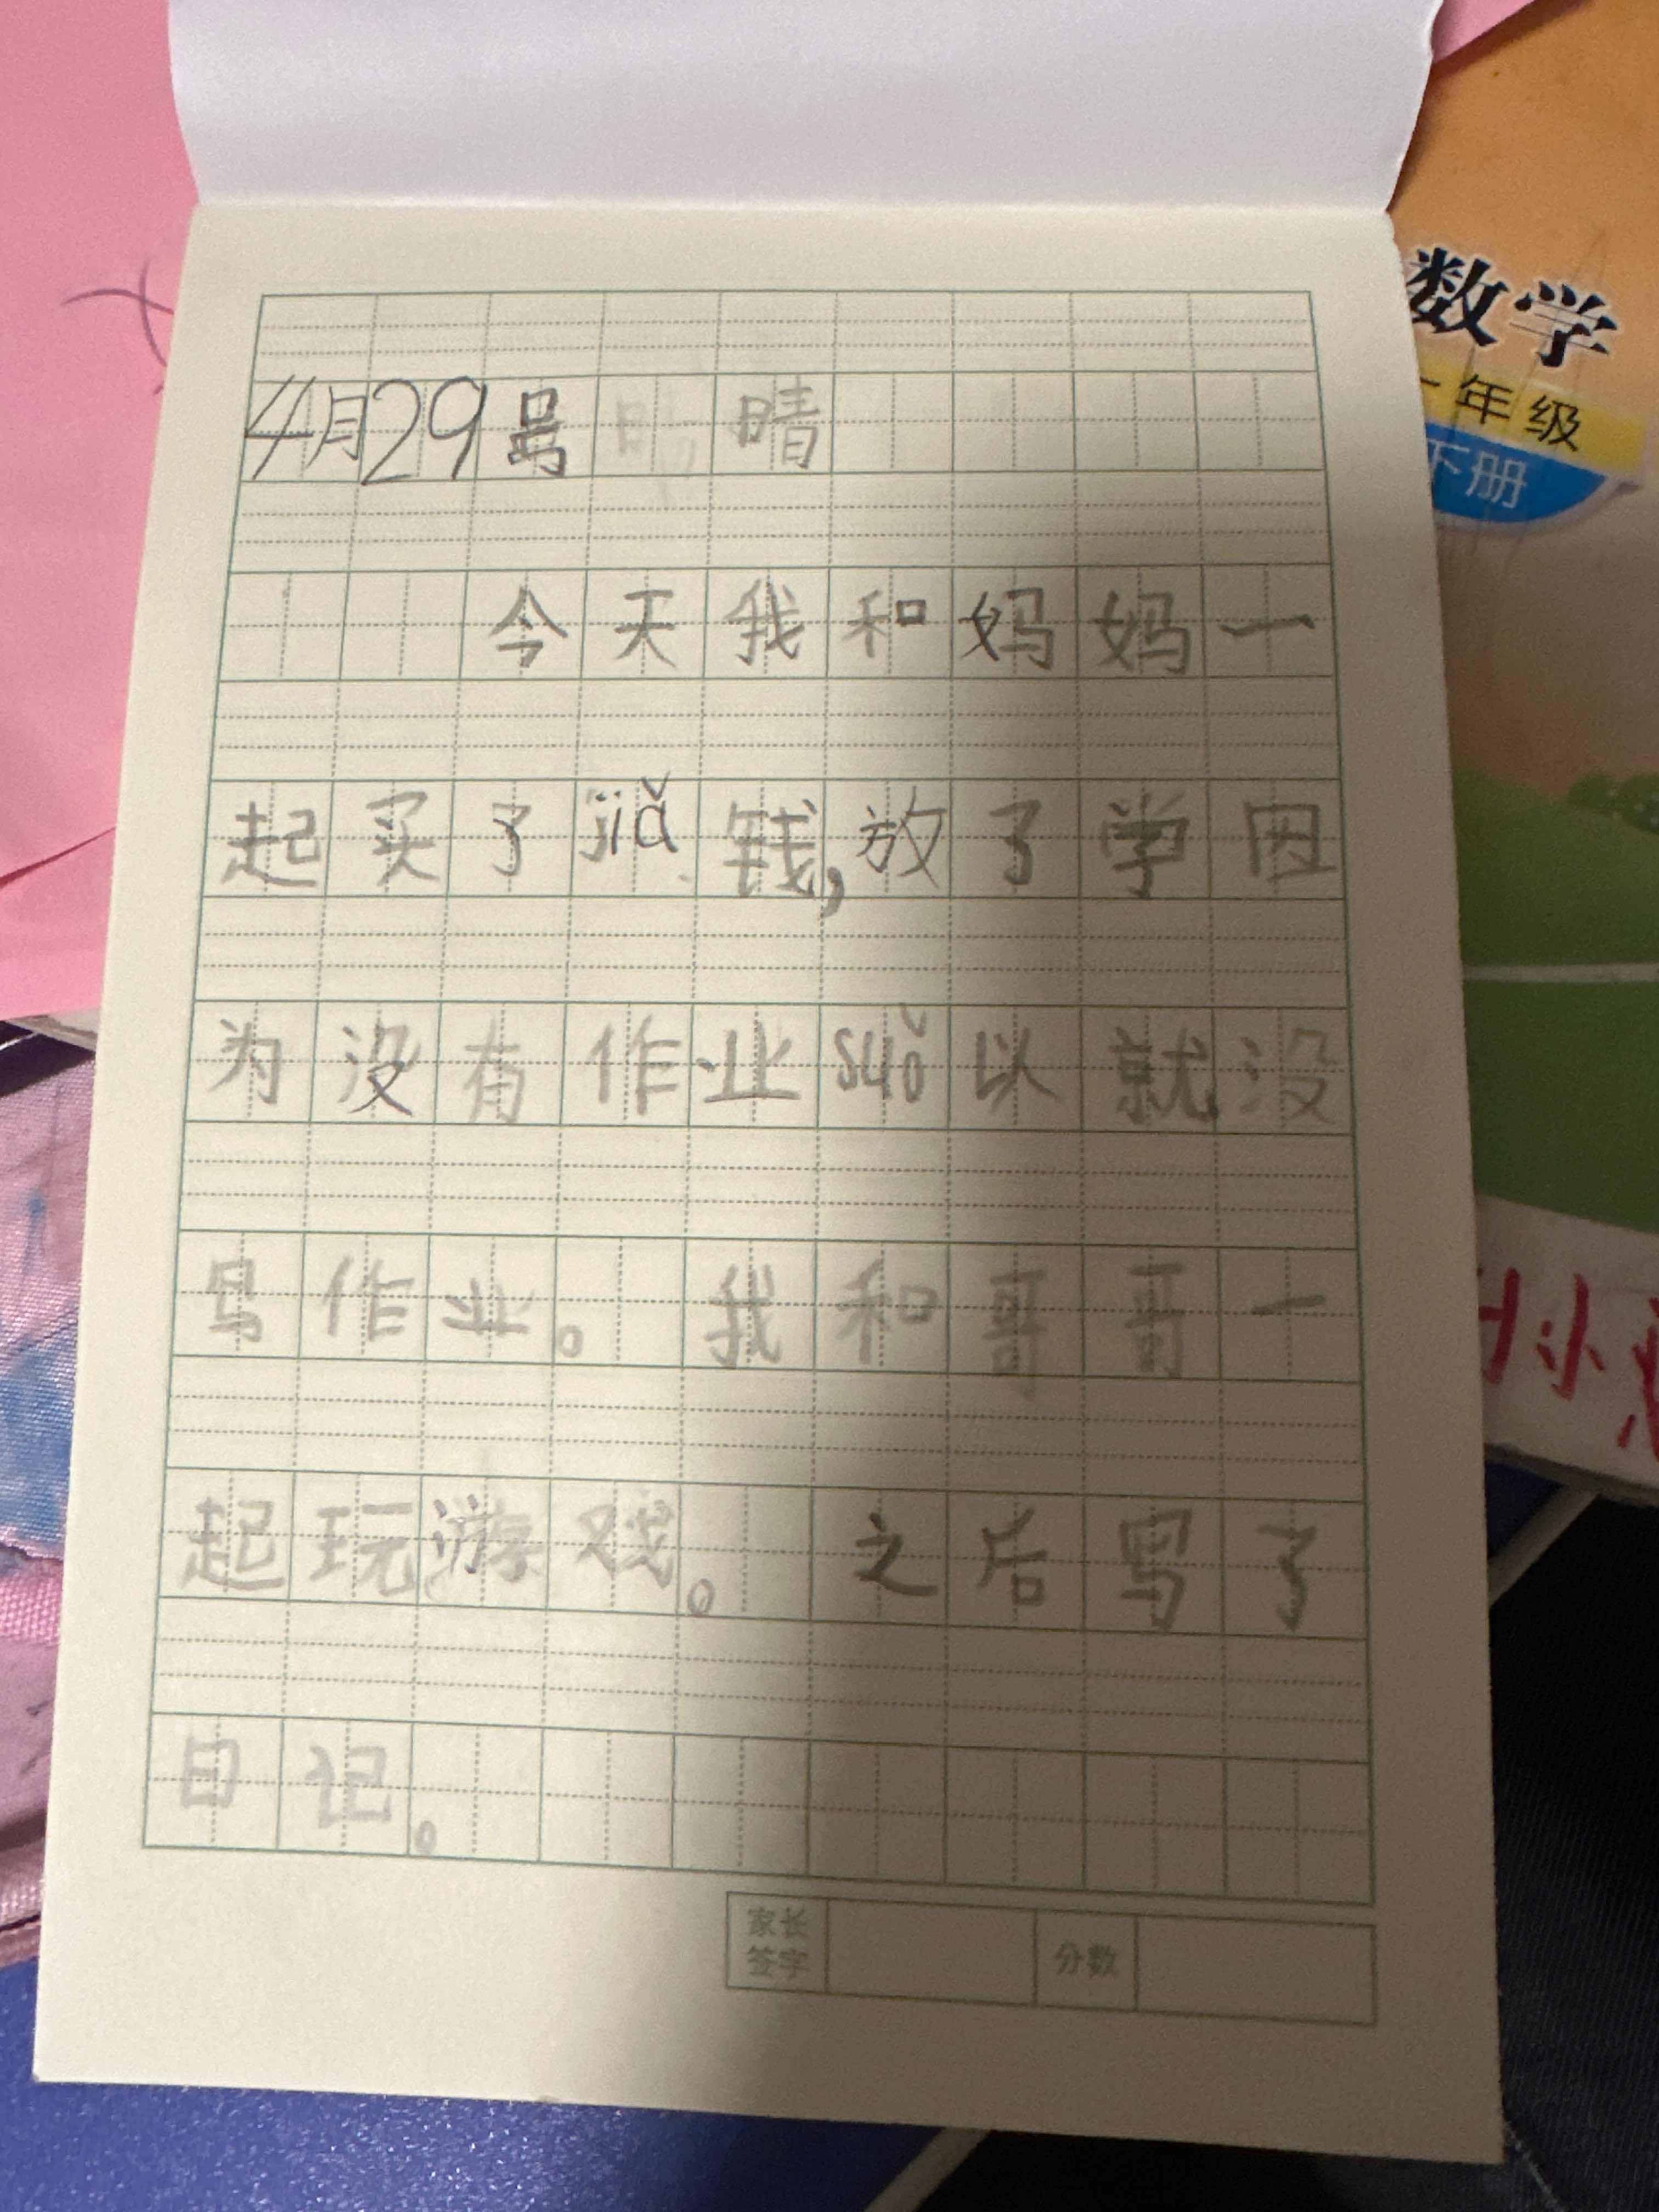 4月29号 晴
今天我和妈妈一
起买了jiǎ钱,放了学因
为没有作业suǒ以就没
写作业。我和哥哥一
起玩游戏。之后写了
日记。
家长
签字
分数
数学
一年级
下册